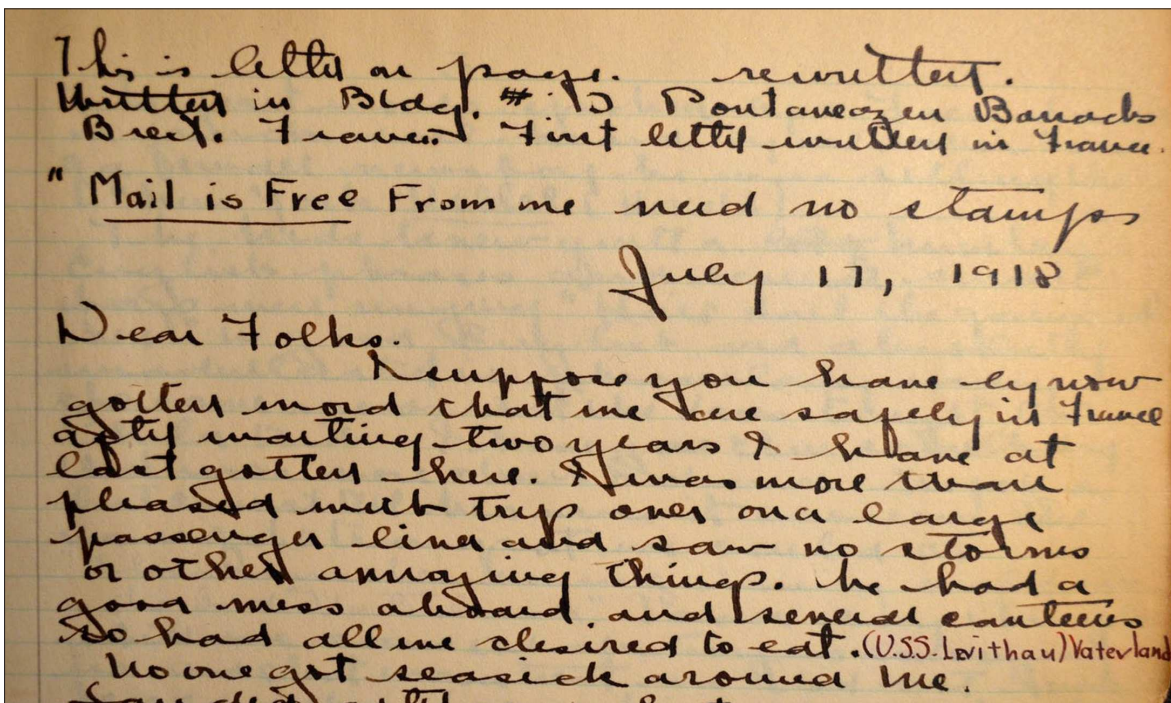 This is letter on page. rewritten.
Written in Bldg. # Pontaneazen Barracks
Brest. France. First letter written in France.
" Mail is Free From me need no stamps
July 17, 1918
Dear Folks.
I suppose you have by now
gotten word that we are safely in France
after waiting two years I have at
last gotten here. I was more than
pleased with trip over on a large
passenger liner and saw no storms
or other annoying things. We had a
good mess aboard, and several canteens
so had all we desired to eat. (U.S.S. Levithan) Vaterland
No one got seasick around me.